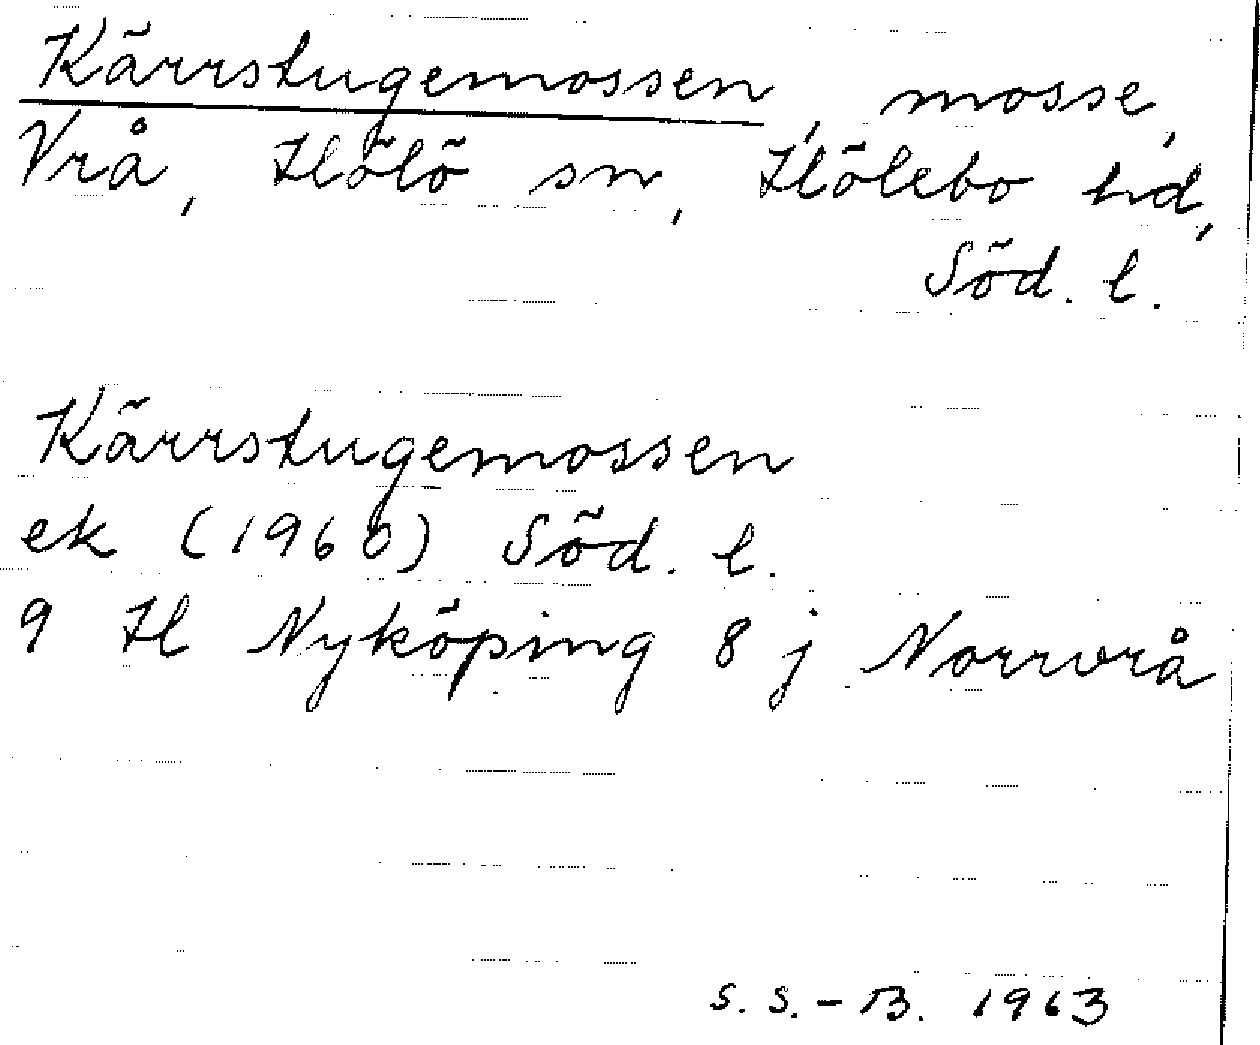 Kärrstugemossen, mosse,
Vrå, Hölö sn, Hölebo hd,
Söd. l.
Kärrstugemossen
ek (1960) Söd. l.
9 H Nyköping 8 j Norrvrå
S. S.-B. 1963